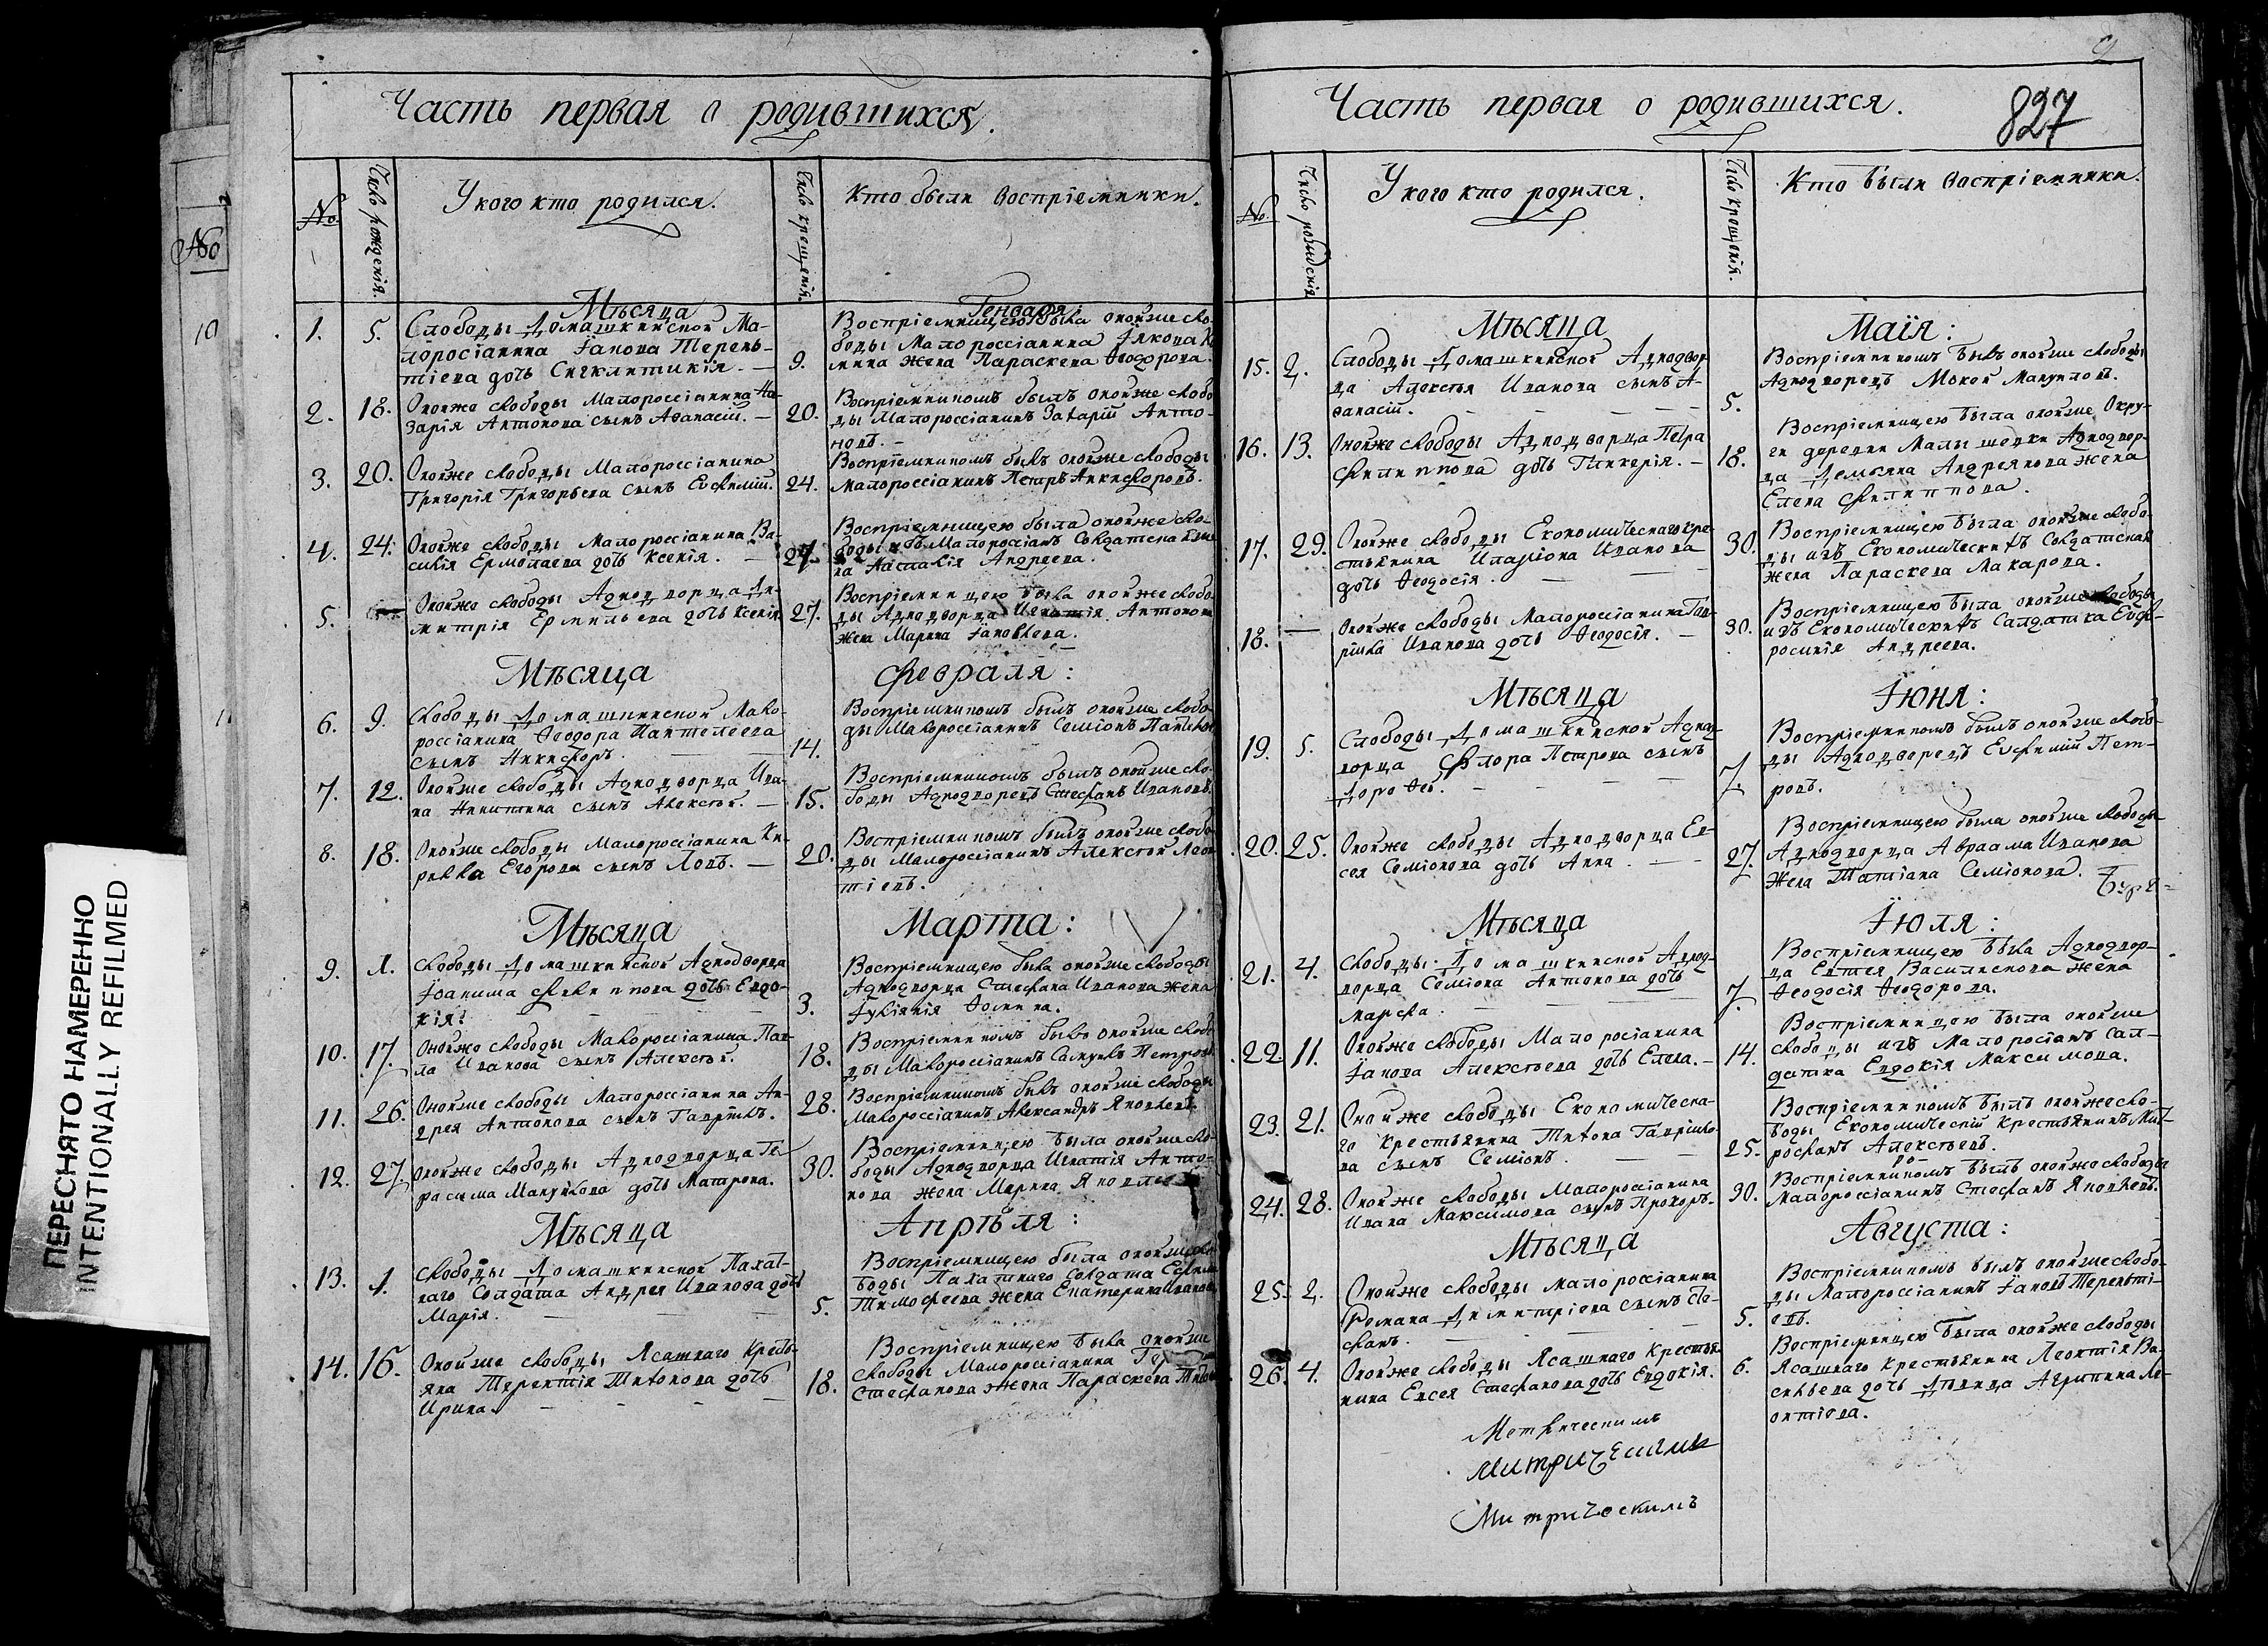 Часть первая о родившихся.
№
Число рожденія.
У кого кто родился.
Число крещенія.
Кто были воспріемники.
Мѣсяца Генваря:
1. 5. Слободы Домашкинской Ма-
лоросіанина Іакова Терень-
тіева дочь Сигклитикія.
9. Воспріемницею была оной же сло-
боды Малороссіанина Іякова
жена Параскева Ѳеодорова.
2. 18. Оной же слободы Малороссіанина На-
зарія Антонова сынъ Аѳанасій.
20. Воспріемникомъ былъ оной же слобо-
ды Малороссіанинъ Захарій Анто-
новъ.
3. 20. Оной же слободы Малороссіанина
Григорія Григорьева сынъ Евфимій.
24. Воспріемникомъ былъ оной же слободы
Малороссіанинъ Петръ Никифоровъ.
4. 24. Оной же слободы Малороссіанина Ва-
силія Ермолаева дочь Ксенія.
27. Воспріемницею была оной же сло-
боды изъ Малороссіанъ Солдатска
Андреева.
5. Оной же слободы Аднодворца Ди-
митрія Ермильева дочь Ксенія
27. Воспріемницею была оной же слобо-
ды Аднодворца Игнатія Антонова
жена Марина Іаковлева.
Мѣсяца Февраля:
6. 9. Слободы Домашкинской Мало-
россіанина Ѳеодора Пантелеева
сынъ Никифоръ.
14. Воспріемникомъ былъ оной же слобо-
ды Малороссіанинъ Семіонъ
7. 12. Оной же слободы Аднодворца Ива-
на Никитина сынъ Алексѣй.
15. Воспріемникомъ былъ оной же сло-
боды Аднодворецъ Стефанъ Ивановъ.
8. 18. Оной же слободы Малороссіанина Ки-
рилла Егорова сынъ Іовъ.
20. Воспріемникомъ былъ оной же слобо-
ды Малороссіанинъ Алексѣй Леон
тіевъ.
Мѣсяца Марта:
9. 1. Слободы Домашкинской Аднодворца
Іоакима Филиппова дочь Евдо-
кія.
3. Воспріемницею была оной же слободы
Аднодворца Стефана Иванова жена
Іуліанія Ѳомина.
10. 17. Оной же слободы Малороссіанина Пав-
ла Иванова сынъ Алексѣй.
18. Воспріемникомъ былъ оной же слобо-
ды Малороссіанинъ Самуилъ Петровъ
11. 26. Оной же слободы Малороссіанина Ан-
дрея Антонова сынъ Гавріилъ.
28. Воспріемникомъ былъ оной же слободы
Малороссіанинъ Александръ Яковлевъ.
12. 27. Оной же слободы Аднодворца Ге-
расима Мануйлова дочь Матрона.
30. Воспріемницею была оной же сло-
боды Аднодворца Игнатія Анто-
нова жена Марина Яковлева
Мѣсяца Апрѣля:
13. 1. Слободы Домашкинской Пахат-
наго Солдата Андрея Иванова дочь
Марія.
5. Воспріемницею была оной же сло-
боды Пахатнаго Солдата
Тимофеева жена Екатерина Иванова
14. 16. Оной же слободы Ясашнаго Кресть-
яна Терентія Титова дочь
Ирина.
18. Воспріемницею была оной же
слободы Малороссіанина
Стефанова жена Параскева
827
Часть первая о родившихся.
№
Число рожденія
У кого кто родился.
Число крещенія.
Кто были воспріемники.
Мѣсяца Маія:
15. 2. Слободы Домашкинской Аднодвор
ца Алексѣя Иванова сынъ А-
ѳанасій.
5. Воспріемникомъ былъ оной же слободы
Аднодворецъ Мокей Мануиловъ.
16. 13. Оной же слободы Аднодворца Петра
Филиппова дочь Гликерія.
18. Воспріемницею была оной же Окру-
ги деревни Малышевки Аднодвор-
ца Демьяна Андреянова жена
Елена Филиппова.
17. 29. Оной же слободы Економическаго кре-
стьянина Иларіона Иванова
дочь Ѳеодосія.
30. Воспріемницею была оной же слобо-
ды изъ Економическихъ Солдатская
жена Параскева Макарова.
18. Оной же слободы Малороссіанина Гав-
ріила Иванова дочь Ѳеодосія.
30. Воспріемницею была оной же слободы
изъ Економическихъ Салдатка Евф-
росинія Андреева.
Мѣсяца Іюня:
19. 5. Слободы Домашкинской Адно-
дворца Флора Петрова сынъ
Дороѳей.
7. Воспріемникомъ былъ оной же слобо-
ды Аднодворецъ Евфимій Пет-
ровъ.
20. 25. Оной же слободы Аднодворца Ев-
сея Семіонова дочь Анна.
27. Воспріемницею была оной же слободы
Аднодворца Авраама Иванова
жена Татіана Семіонова.
Мѣсяца Іюля:
21. 4. Слободы Домашкинской Аднод-
ворца Семіона Антонова дочь
Марфа.
7. Воспріемницею была Аднодвор-
ца Евтея Василискова жена
Ѳеодосія Ѳеодорова.
22. 11. Оной же слободы Малоросіанина
Іакова Алексѣева дочь Елена.
14. Воспріемницею была оной же
слободы изъ Малоросіанъ Сал-
датка Евдокія Максимова.
23. 21. Оной же слободы Економическа-
го крестьянина Титова Гаврило-
ва сынъ Семіонъ.
25. Воспріемникомъ былъ оной же сло-
боды Економическій крестьянинъ Мит-
рофанъ Алексѣевъ.
24. 28. Оной же слободы Малороссіанина
Ивана Максимова сынъ Прохоръ.
30. Воспріемникомъ былъ оной же слободы
Малороссіанинъ Стефанъ Яковлевъ.
Мѣсяца Августа:
25. 2. Оной же слободы Малороссіанина
Романа Димитріева сынъ Сте-
фанъ.
5. Воспріемникомъ былъ оной же слобо-
ды Малороссіанинъ Іаковъ Теренті-
евъ.
26. 4. Оной же слободы Ясашнаго Крестья
нина Евсея Стефанова дочь Евдокія.
6. Воспріемницею была оной же слободы
Ясашнаго Крестьянина Леонтія Ва-
сильева дочь дѣвица Агрипина Ле-
онтіева.
Метрическимъ
Митрическимъ
ПЕРЕСНЯТО НАМЕРЕННО
INTENTIONALLY REFILMED
№
10